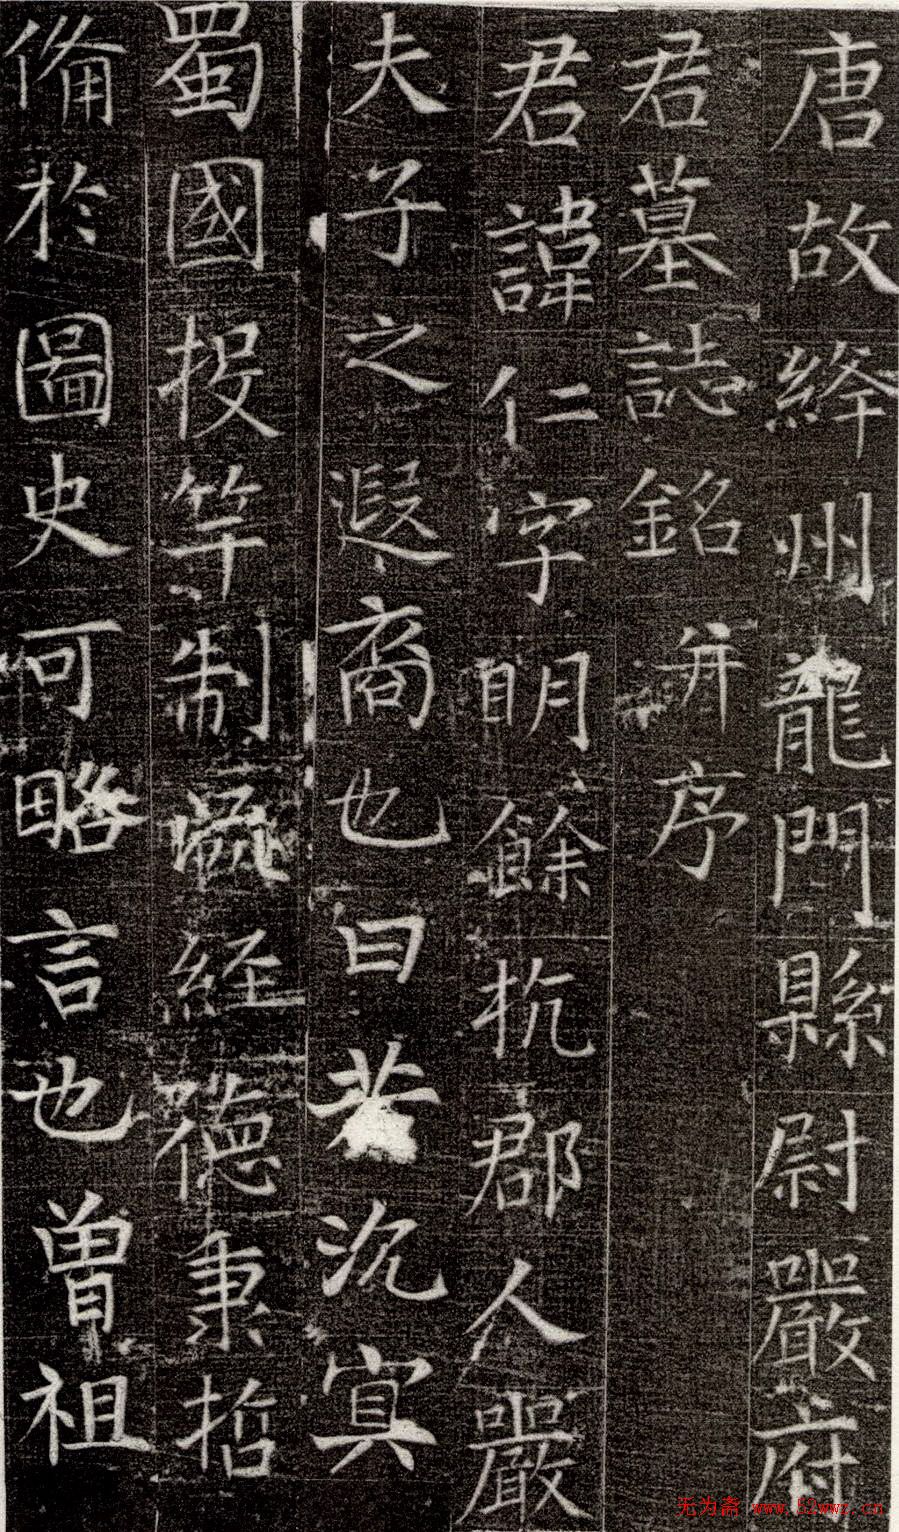 唐故絳州龍門縣尉嚴府
君墓誌銘并序
君諱仁字明餘杭郡人嚴
夫子之遐裔也曰若沉冥
蜀國投竿制 經德秉哲
備於圖史可略言也曾祖
无为斋 www.52wwz.cn